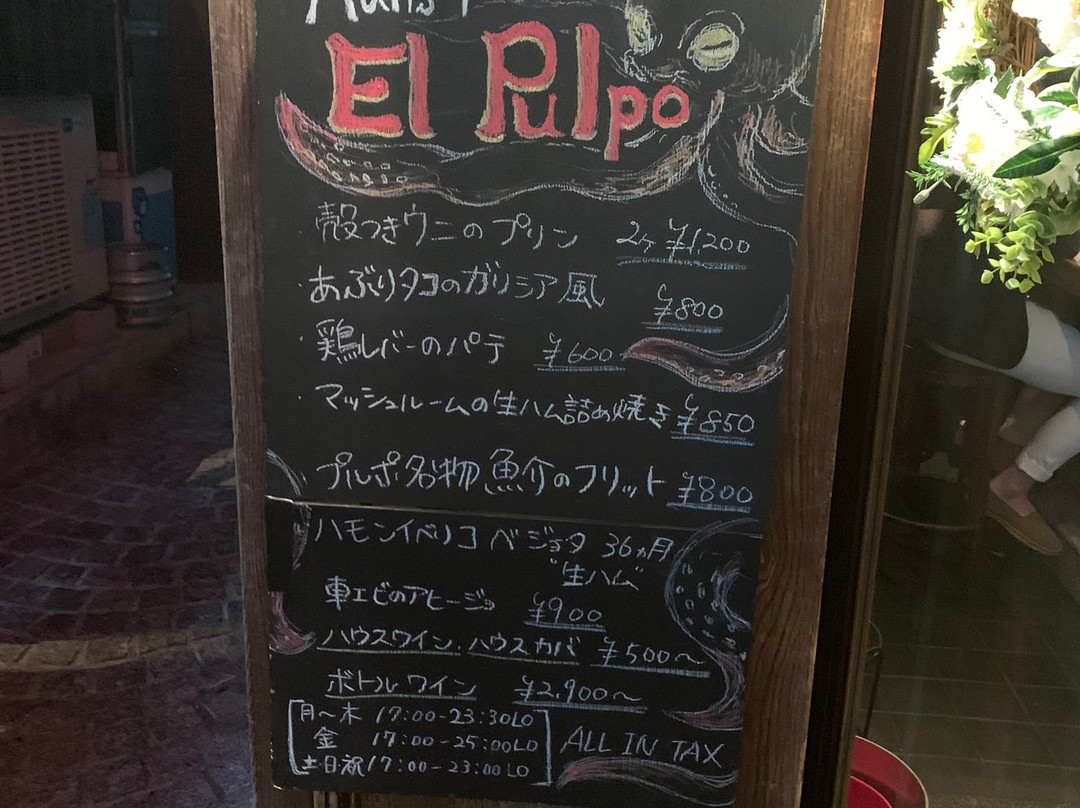 El Pulpo
殻つきウニのプリン 2ヶ ¥1,200
・あぶりタコのガリシア風 ¥800
・鶏レバーのパテ ¥600
・マッシュルームの生ハム詰め焼き ¥850
プルポ名物 魚介のフリット ¥800
ハモンイベリコ ベジョータ 36ヵ月
"生ハム"
車エビのアヒージョ ¥900
ハウスワイン.ハウスカバ ¥500〜
ボトルワイン ¥2,900〜
月〜木 17:00-23:30LO
金 17:00-25:00LO
土日祝 17:00-23:00LO
ALL IN TAX